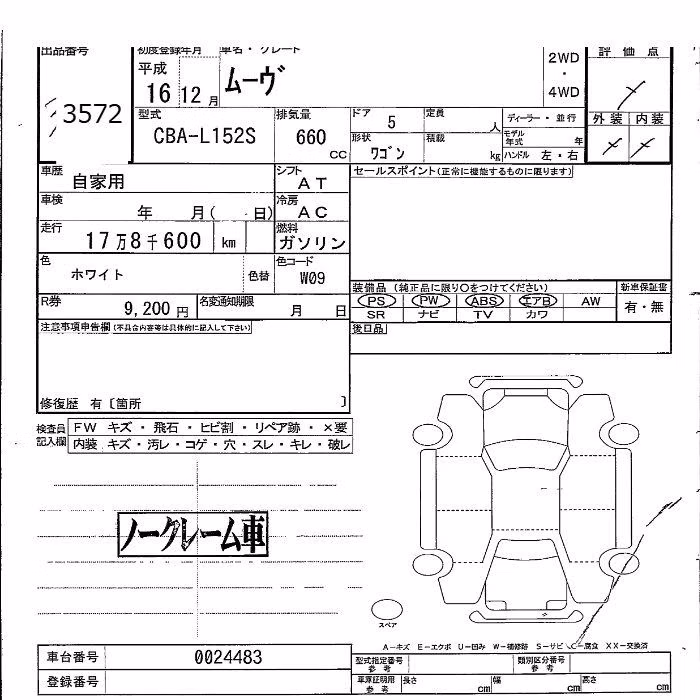 出品番号 初度登録年月 車名・グレード 2WD・4WD 評価点
3572 平成 16 12月 ムーヴ
外装 内装
型式 CBA-L152S 排気量 660 CC
ドア 5 定員 人 ディーラー・並行
形状 ワゴン 積載 kg モデル年式 年 ハンドル 左・右
車歴 自家用 シフト AT セールスポイント(正常に機能するものに限ります)
車検 年 月( 日) 冷房 AC
走行 17万8千600 km 燃料 ガソリン
色 ホワイト 色替 色コード W09
装備品 (純正品に限り○をつけてください) 新車保証書
PS PW ABS エアB AW 有・無
SR ナビ TV カワ
R券 9,200円 名変通知期限 月 日
注意事項申告欄(不具合内容等は具体的に記入して下さい) 後日品
修復歴 有〔箇所 〕
検査員記入欄 FW キズ・飛石・ヒビ割・リペア跡・×要
内装 キズ・汚レ・コゲ・穴・スレ・キレ・破レ
ノークレーム車
スペア
A-キズ E-エクボ U-凹み W-補修跡 S-サビ C-腐食 XX-交換済
車台番号 0024483 型式指定番号 参考 類別区分番号 参考
登録番号 車庫証明用 参考 長さ cm 幅 cm 高さ cm